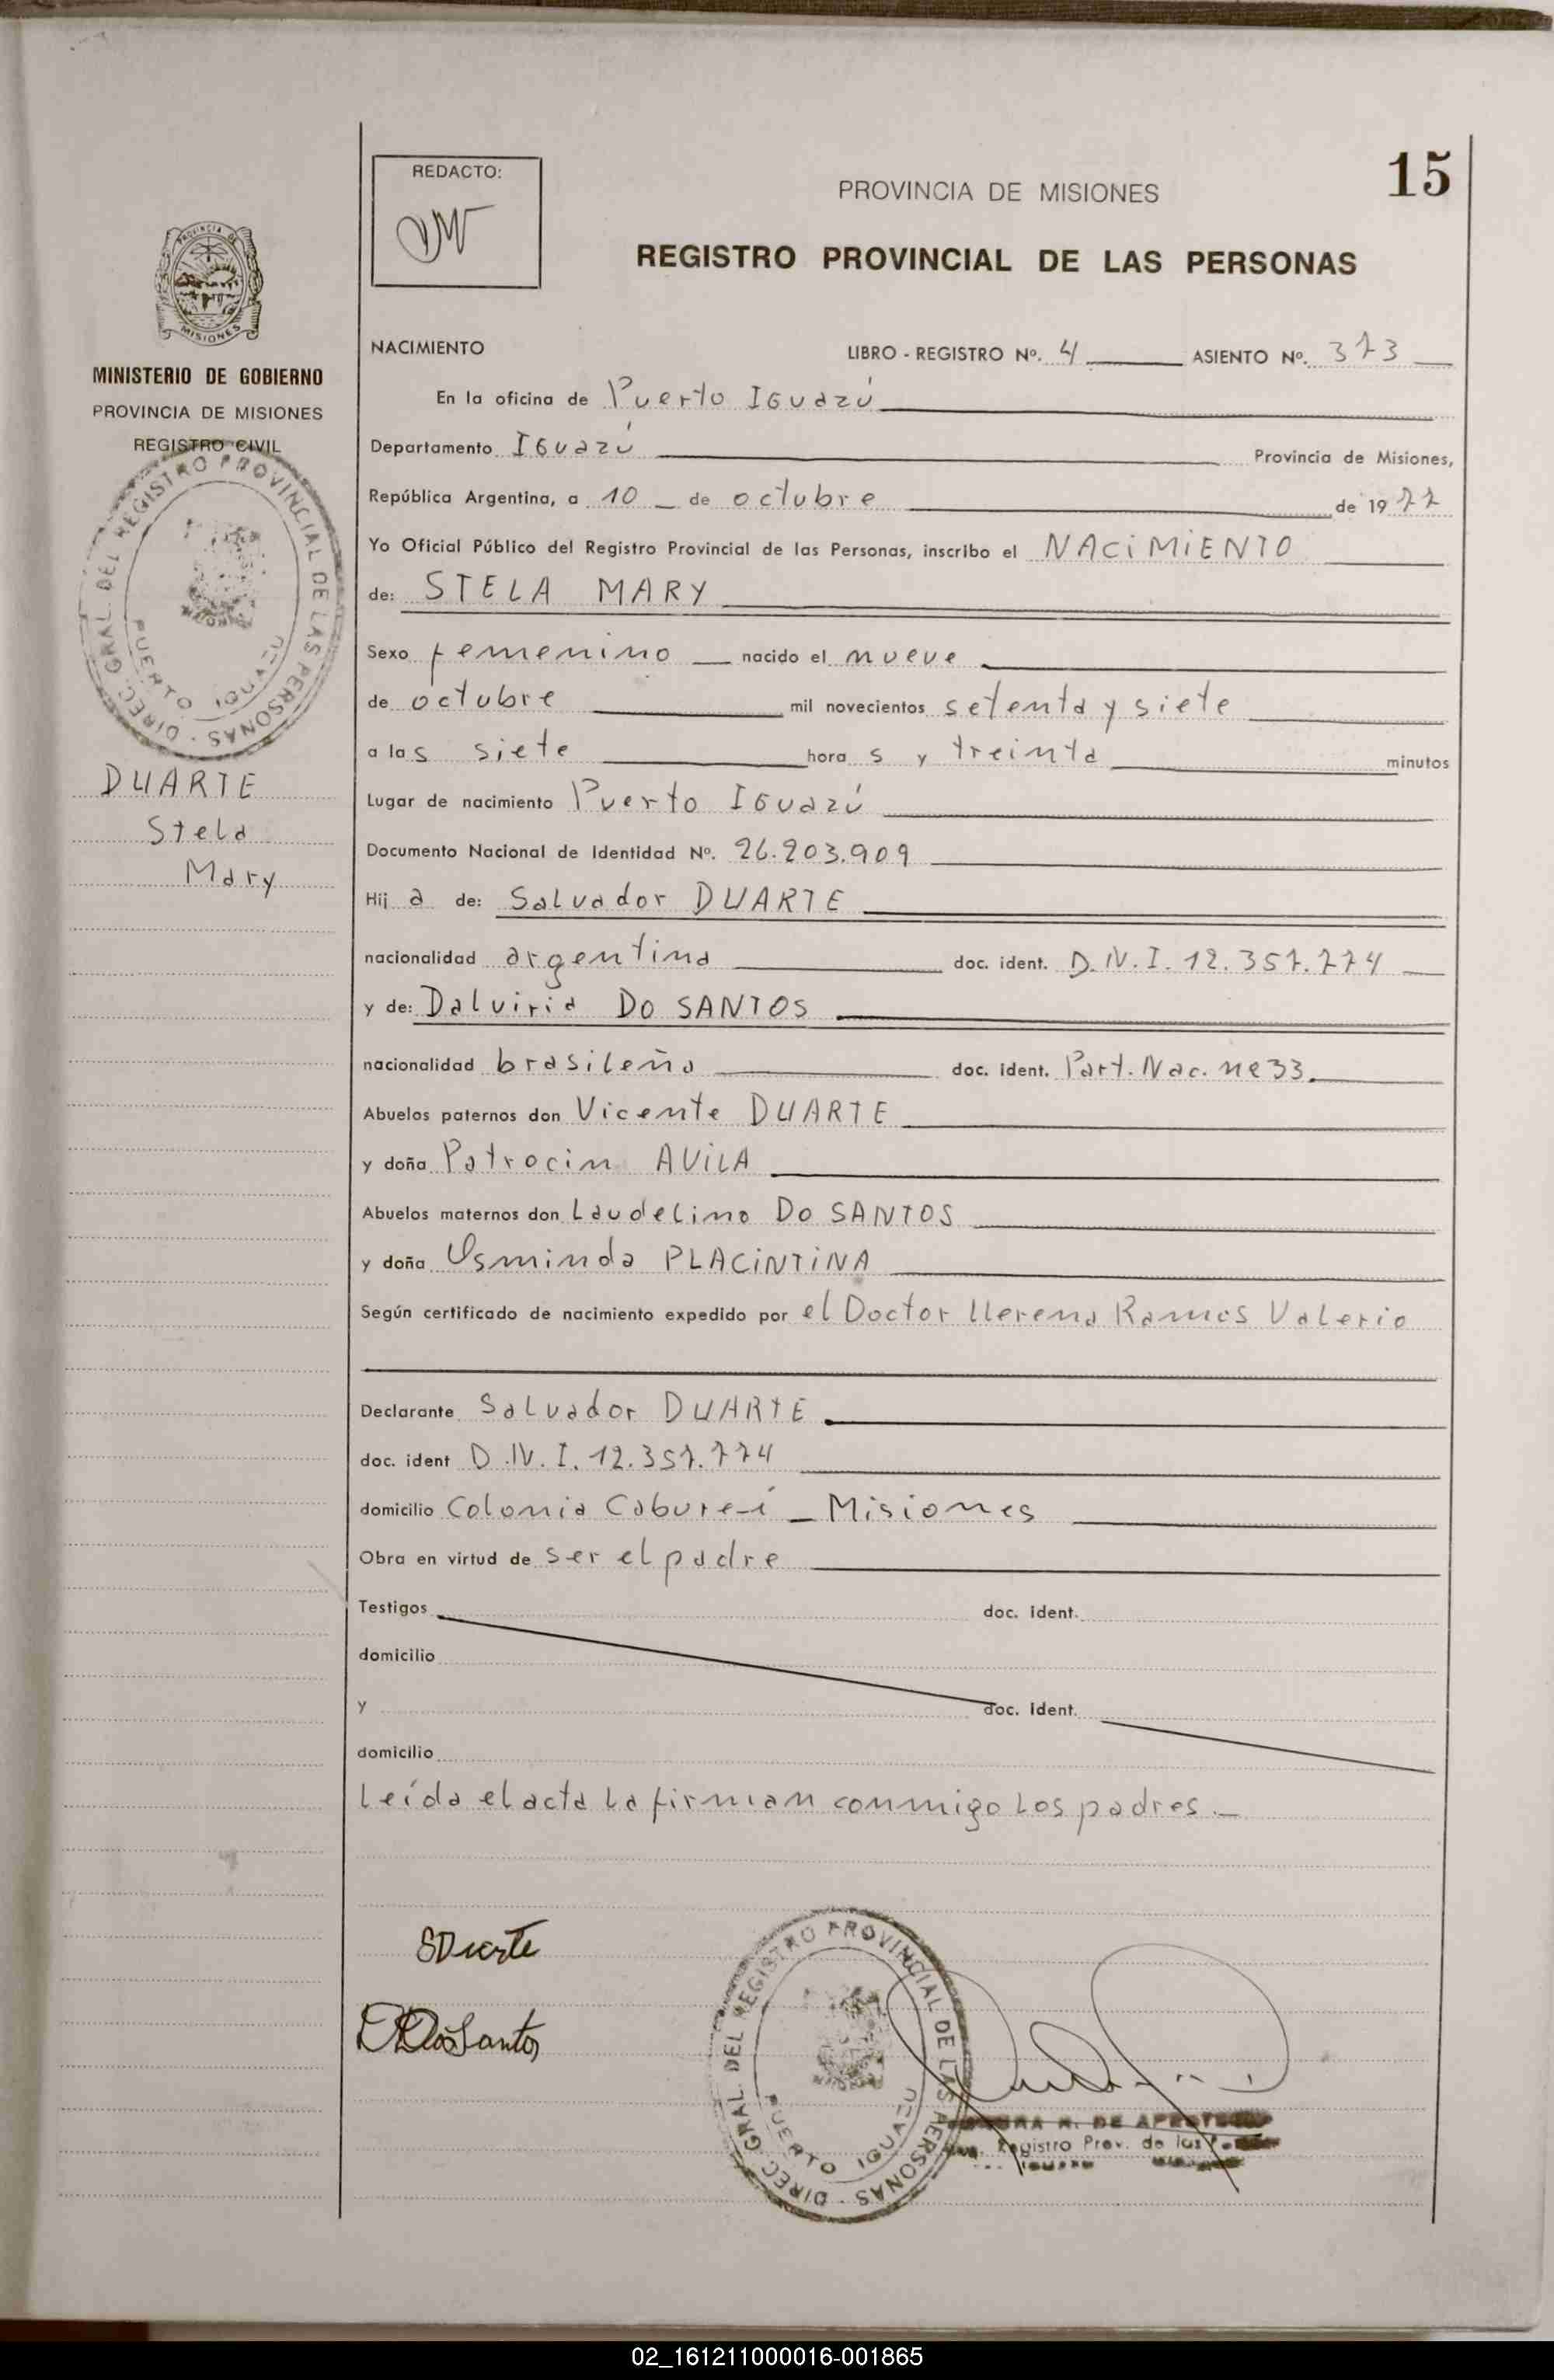 15
REDACTO:
PROVINCIA DE MISIONES
REGISTRO PROVINCIAL DE LAS PERSONAS
MISIONES
MINISTERIO DE GOBIERNO
PROVINCIA DE MISIONES
REGISTRO CIVIL
DIREC. GRAL. DEL REGISTRO PROVINCIAL DE LAS PERSONAS
PUERTO IGUAZU
DUARTE
Stela
Mary
NACIMIENTO LIBRO - REGISTRO Nº. 4 ASIENTO Nº. 373
En la oficina de Puerto Iguazú
Departamento Iguazú Provincia de Misiones,
República Argentina, a 10 de octubre de 1977
Yo Oficial Público del Registro Provincial de las Personas, inscribo el NACIMIENTO
de: STELA MARY
Sexo femenino nacido el nueve
de octubre mil novecientos setenta y siete
a las siete horas y treinta minutos
Lugar de nacimiento Puerto Iguazú
Documento Nacional de Identidad Nº. 26.203.909
Hija de: Salvador DUARTE
nacionalidad argentina doc. ident. D.N.I. 12.357.774
y de: Dalviria DO SANTOS
nacionalidad brasileña doc. ident. Part. Nac. nº 33.
Abuelos paternos don Vicente DUARTE
y doña Patrocin AVILA
Abuelos maternos don Laudelino DO SANTOS
y doña Osminda PLACINTINA
Según certificado de nacimiento expedido por el Doctor Llerena Ramos Valerio
Declarante Salvador DUARTE
doc. ident D.N.I. 12.357.774
domicilio Colonia Cabure-í - Misiones
Obra en virtud de ser el padre
Testigos doc. ident.
domicilio
y doc. ident.
domicilio
Leída el acta la firman conmigo los padres.-
SDuarte
DDosSantos
DIREC GRAL. DEL REGISTRO PROVINCIAL DE LAS PERSONAS
PUERTO IGUAZU
DE
Registro Prov. de las
02_161211000016-001865